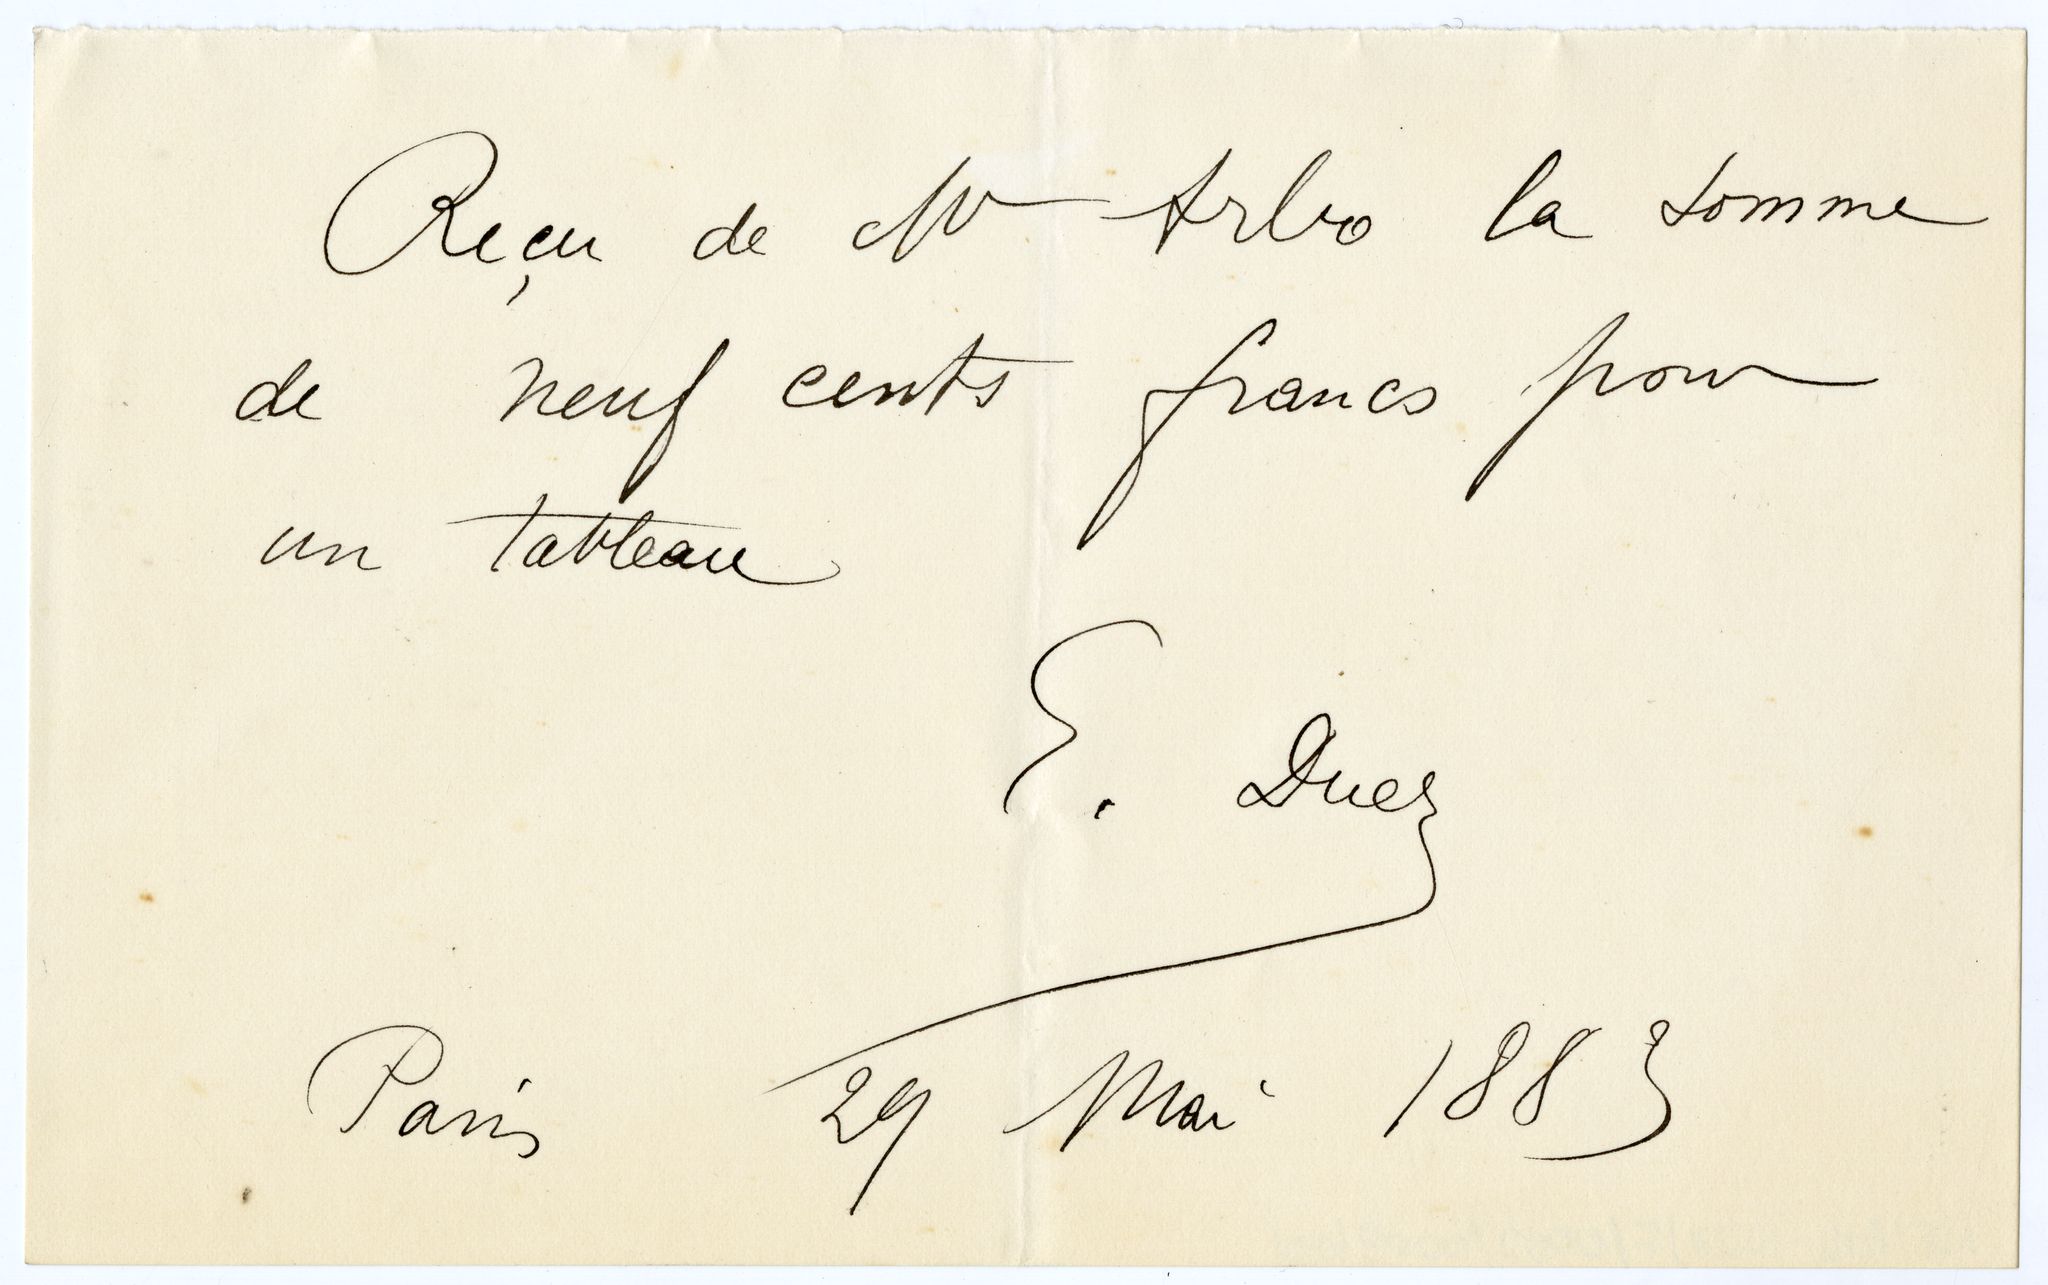 Reçu de Mr Arbo la somme
de neuf cents francs pour
un tableau
E. Duez
Paris 29 Mai 1883